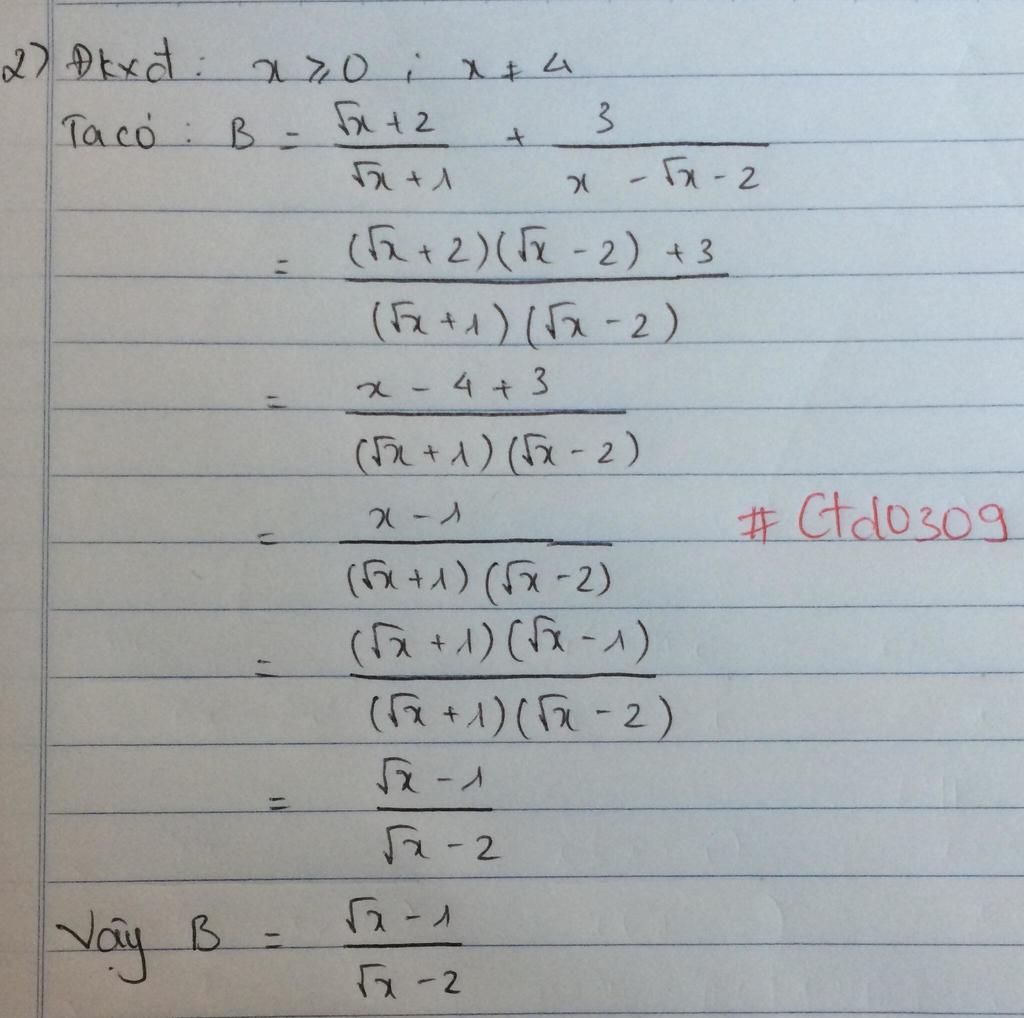 2) Đkxđ: x ≥ 0 ; x ≠ 4
Ta có: B = (√x + 2)/(√x + 1) + 3/(x - √x - 2)
= ((√x + 2)(√x - 2) + 3)/((√x + 1)(√x - 2))
= (x - 4 + 3)/((√x + 1)(√x - 2))
= (x - 1)/((√x + 1)(√x - 2))
# Ctd0309
= ((√x + 1)(√x - 1))/((√x + 1)(√x - 2))
= (√x - 1)/(√x - 2)
Vậy B = (√x - 1)/(√x - 2)